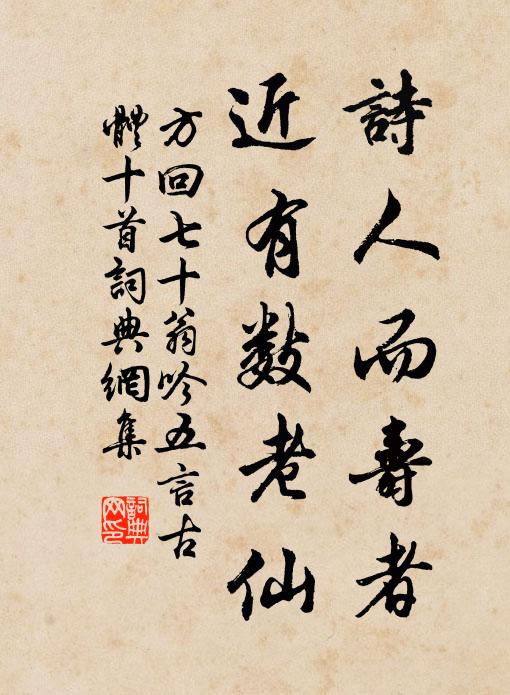 詩人而壽者
近有数老仙
方回七十翁吟五言古
體十首詞典網集
詞典網印